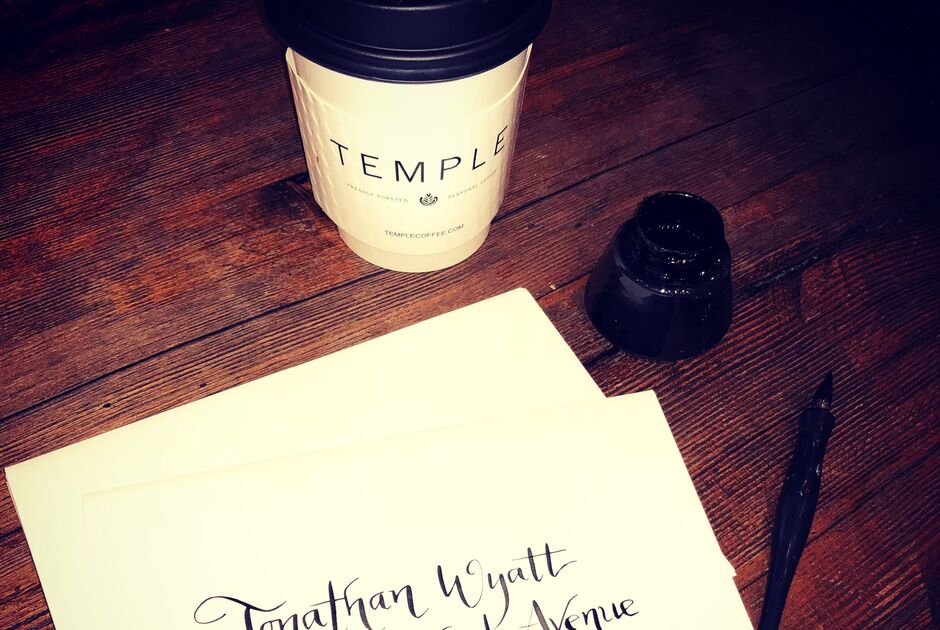 TEMPLE
FRESHLY ROASTED SEASONAL COFFEE
TEMPLECOFFEE.COM
Jonathan Wyatt
Avenue